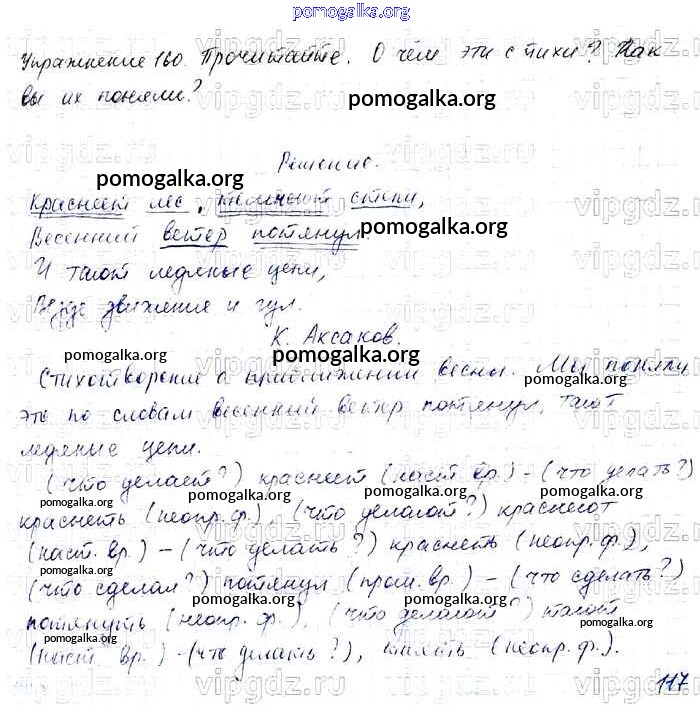 pomogalka.org
Упражнение 160. Прочитайте. О чём эти стихи? Как
вы их поняли?
pomogalka.org
Решение.
pomogalka.org
Краснеет лес, степи,
pomogalka.org
Весенний ветер потянул.
И тают ледяные цепи,
Везде движения и гул.
К. Аксаков.
pomogalka.org
Стихотворение о приближении весны. Мы поняли
pomogalka.org
это по словам весенний ветер потянул, тают
ледяные цепи.
pomogalka.org
(что делает?) краснеет (наст. вр.) – (что делать?)
pomogalka.org
краснеть (неопр. ф.), (что делают?) краснеют
pomogalka.org
(наст. вр.) – (что делать?) краснеть (неопр. ф.),
pomogalka.org
(что сделал?) потянул (прош. вр.) – (что сделать?)
pomogalka.org
потянуть (неопр. ф.), (что делают?) тают
pomogalka.org
(наст. вр.) – (что делать?), таять (неопр. ф.).
117
vipgdz.ru